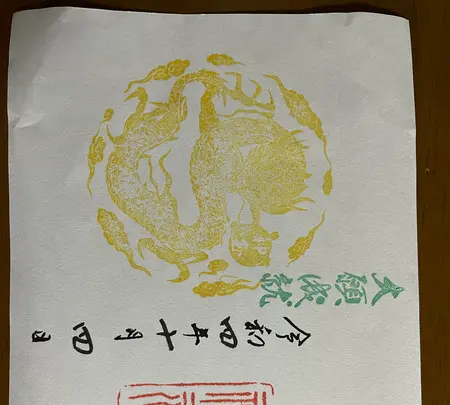 令和四年十月四日
大願成就